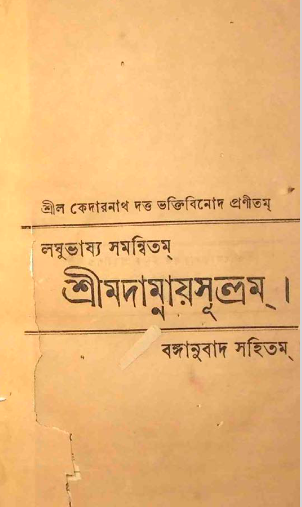 শ্রীল কেদারনাথ দত্ত ভক্তিবিনোদ প্রণীতম্
লঘুভাষ্য সমন্বিতম্
শ্রীমদাম্নায়সূত্রম্ ।
বঙ্গানুবাদ সহিতম্